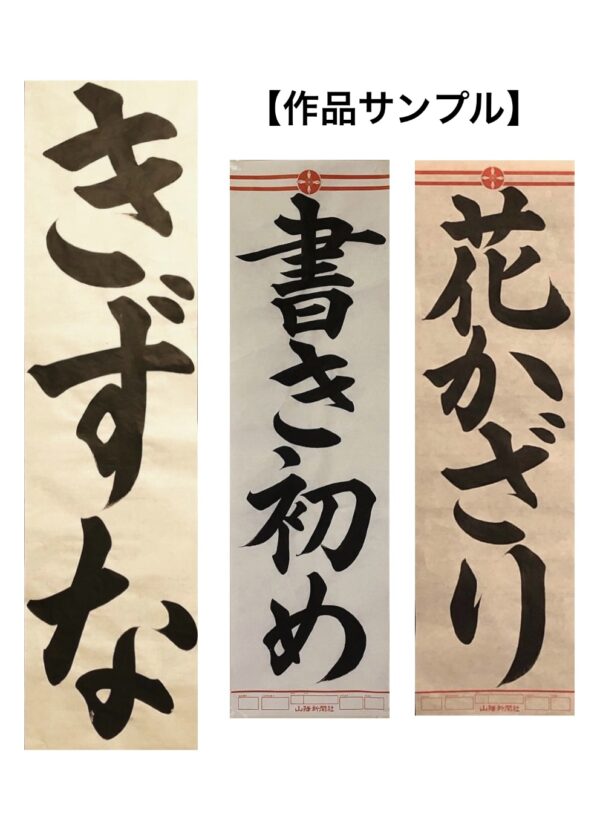 【作品サンプル】
きずな
書き初め
花かざり
山陽新聞社
山陽新聞社